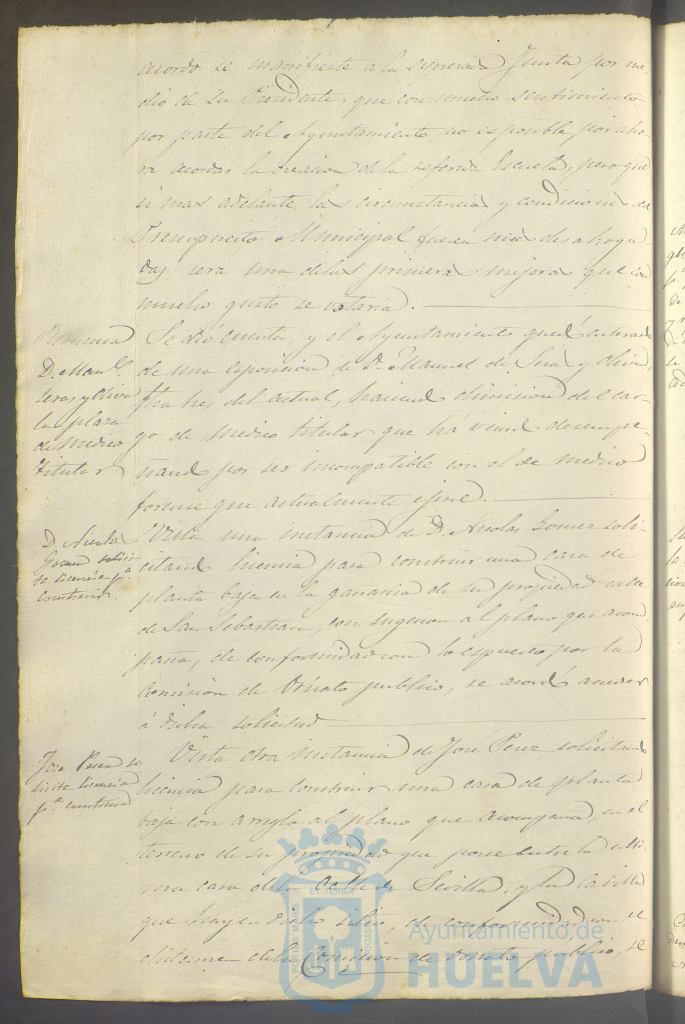 acordó se manifieste a la expresada Junta por me-
dio de su Presidente, que con mucho sentimiento
por parte del Ayuntamiento no es posible por aho-
ra acordar la creacion de la referida Escuela, pero que
si mas adelante las circunstancias y condiciones del
Presupuesto Municipal fueran mas desahoga
das sera una de las primeras mejoras que con
mucho gusto se votaria.
Renuncia
D. Manl
Seras y Oliva
la plaza
de Medico
titular
Se dió cuenta, y el Ayuntamiento quedó enterado
de una esposicion de D. Manuel de Seras y Oliva,
fha tres del actual, haciendo dimision del car-
go de Medico titular que há venido desempe-
ñando por ser incompatible con el de medico
forense que actualmente ejerce.
D. Nicolas
Gomez solici
ta licencia pa
construir.
Vista una instancia de D. Nicolas Gomez soli-
citando licencia para construir una casa de
planta baja en la gañania de su propiedad calle
de San Sebastian, con sugecion al plano que acom
paña, de conformidad con lo espuesto por la
Comision de Ornato publico, se acordó acceder
á dicha solicitud
José Perez so
licita licencia
pa construir
Vista otra instancia de José Perez solicitando
licencia para construir una casa de planta
baja con arreglo al plano que acompaña, en el
terreno de su propiedad que posee entre la ulti-
ma casa de la Calle de Sevilla, y la
que hay en dicho sitio, de conformidad con el
dictamen de la Comision de ornato publico, se
Ayuntamiento de
HUELVA